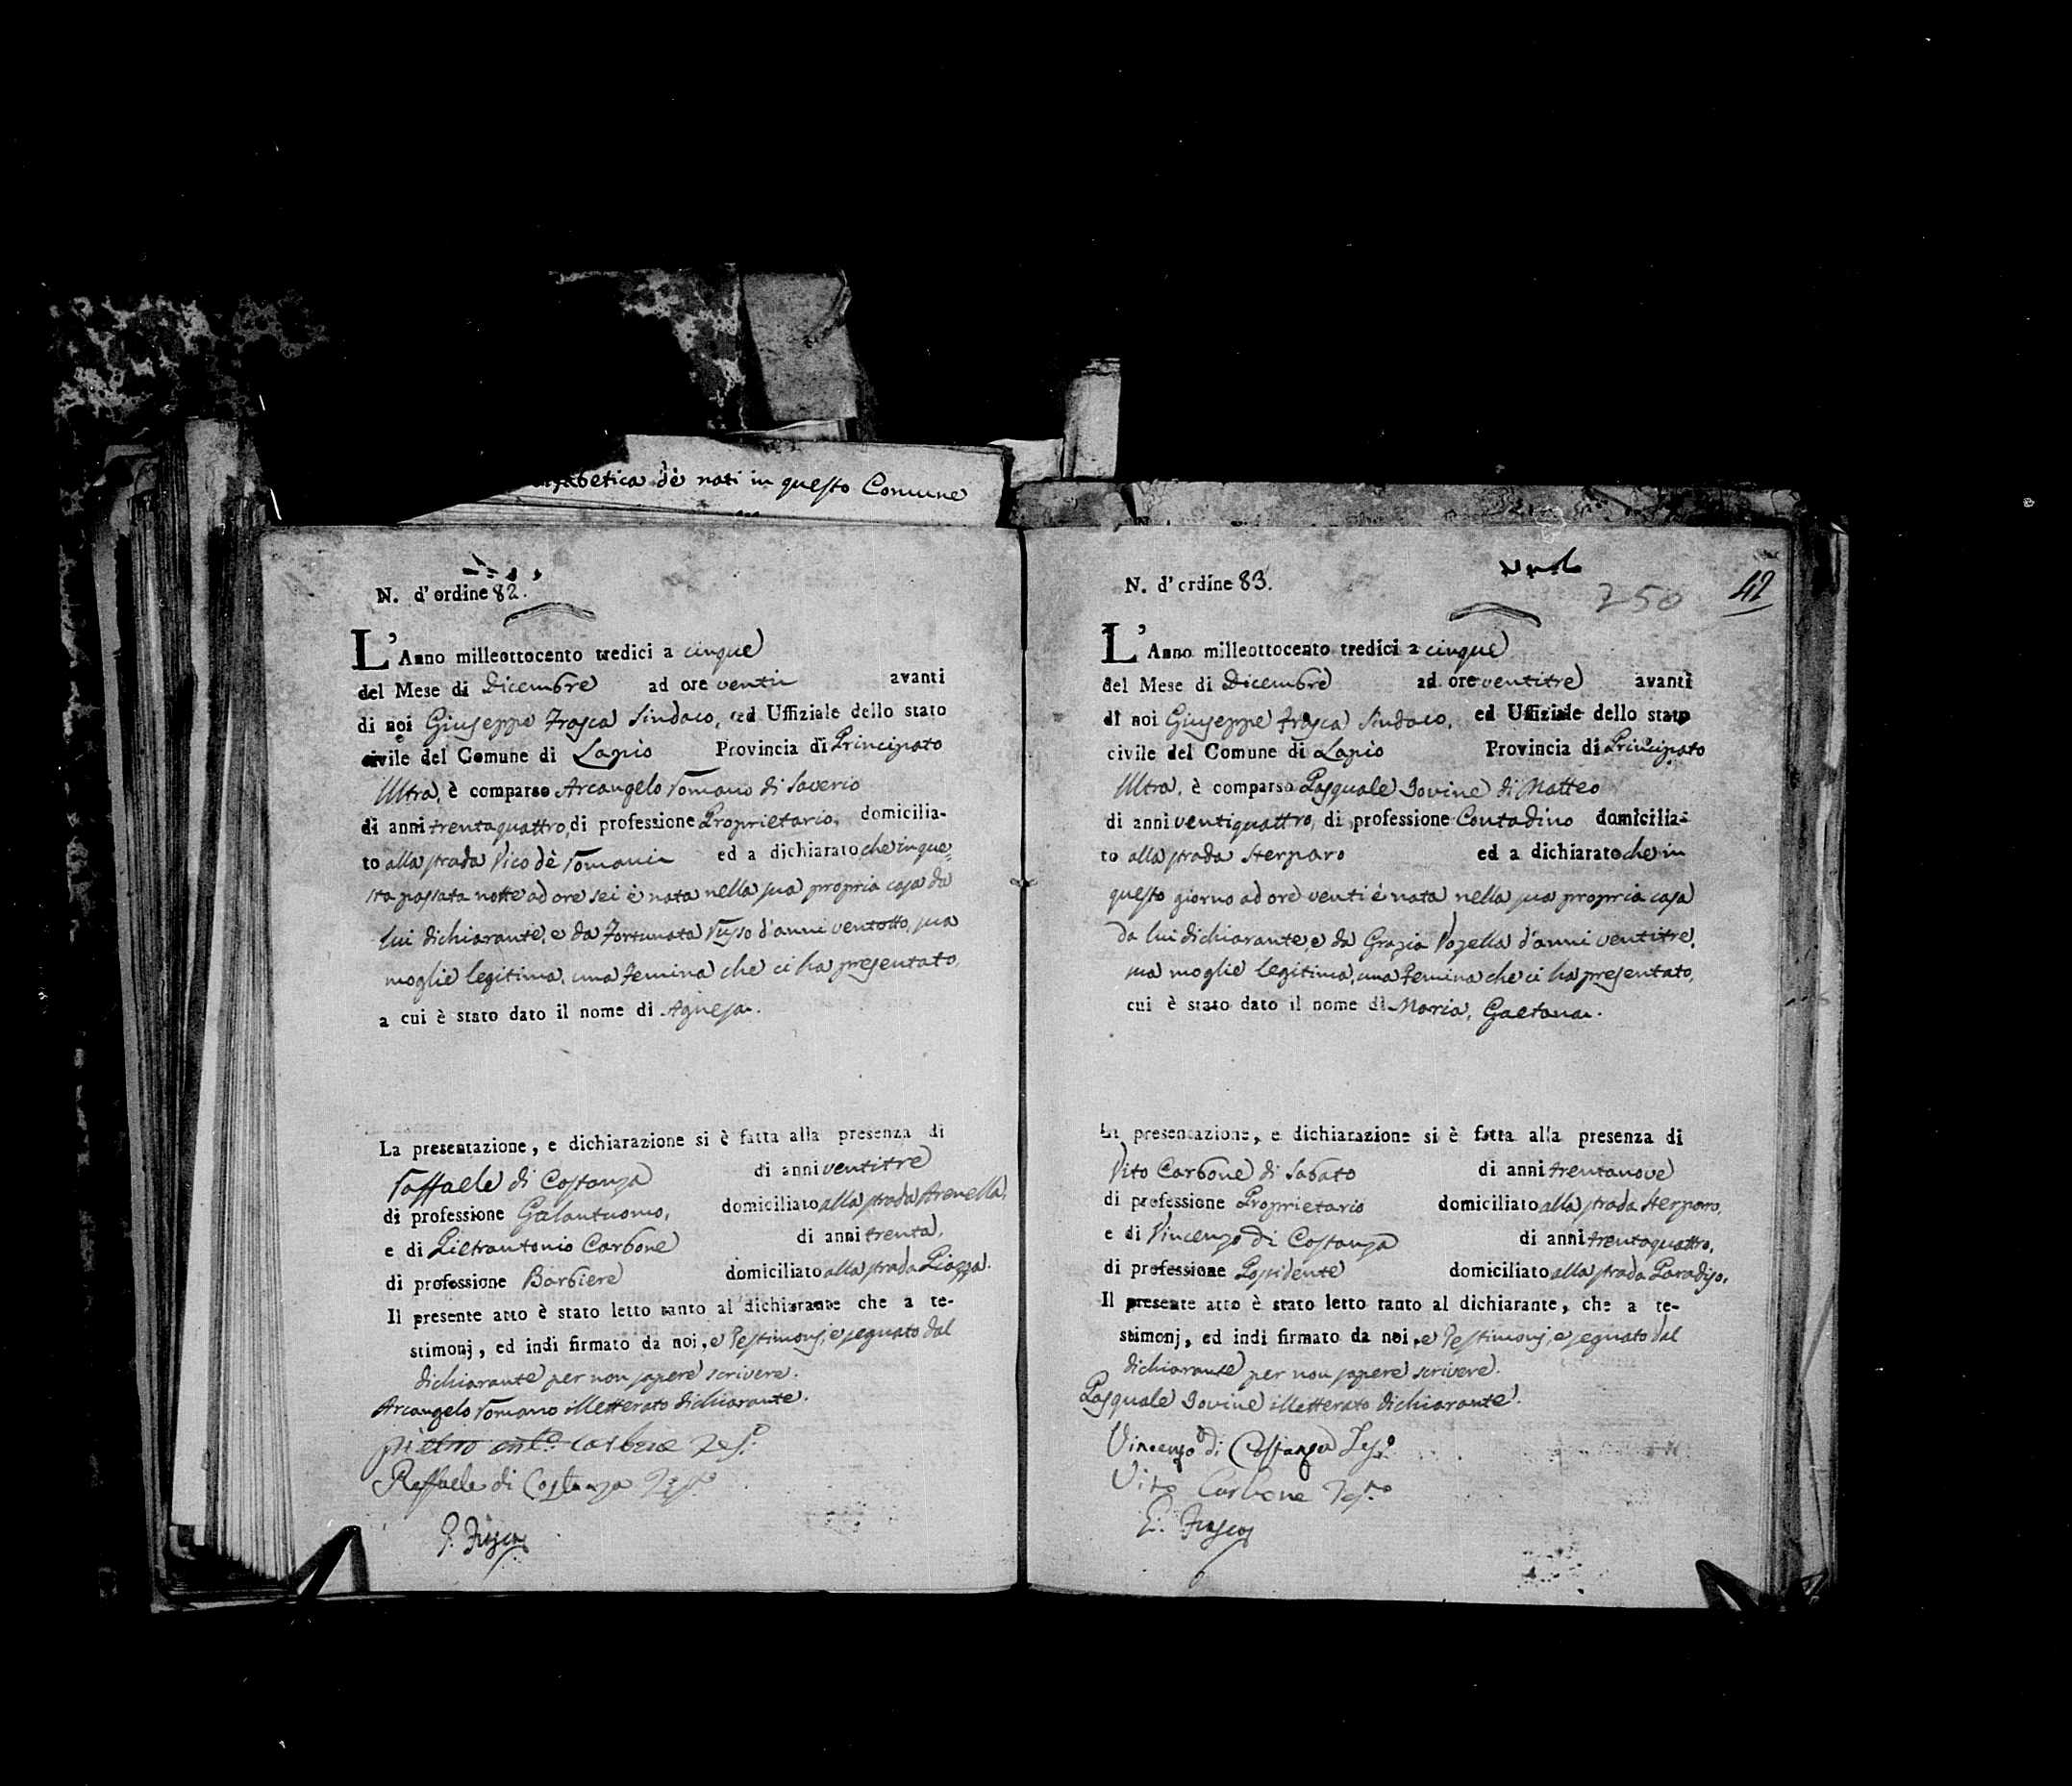 alfabetica dè nati in questo Comune
N. d'ordine 82.
L'Anno milleottocento tredici a cinque
del Mese di Dicembre ad ore venti avanti
di noi Giuseppe Frasca Sindaco, ed Uffiziale dello stato
civile del Comune di Lapio Provincia di Principato
Ultra, è comparso Arcangelo Romano di Saverio
di anni trentaquattro, di professione Proprietario, domicilia-
to alla strada Vico dè Romani ed a dichiarato che in que=
sta passata notte ad ore sei è nata nella sua propria casa da
lui dichiarante, e da Fortunata Russo d'anni ventotto, sua
moglie legitima, una Femina che ci ha presentato
a cui è stato dato il nome di Agnesa.
La presentazione, e dichiarazione si è fatta alla presenza di
Raffaele di Costanza di anni ventitre
di professione Galantuomo, domiciliato alla strada Arenella,
e di Pietrantonio Carbone di anni trenta,
di professione Barbiere domiciliato alla strada Piazza.
Il presente atto è stato letto tanto al dichiarante che a te-
stimonj, ed indi firmato da noi, e Testimonj, e segnato dal
dichiarante per non sapere scrivere.
Arcangelo Romano illetterato dichiarante.
pietro ant.o carbone Tes.o
Raffaele di Costanza Tes.o
G. Frasca
N. d'ordine 83.
250
42
L'Anno milleottocento tredici a cinque
del Mese di Dicembre ad ore ventitre avanti
di noi Giuseppe Frasca Sindaco, ed Uffiziale dello stato
civile del Comune di Lapio Provincia di Principato
Ultra, è comparso Pasquale Iovine di Matteo
di anni ventiquattro, di professione Contadino domicilia-
to alla strada Sterparo ed a dichiarato che in
questo giorno ad ore venti è nata nella sua propria casa
da lui dichiarante, e da Grazia Vozella d'anni ventitre,
sua moglie legitima, una Femina che ci ha presentato,
cui è stato dato il nome di Maria, Gaetana.
La presentazione, e dichiarazione si è fatta alla presenza di
Vito Carbone di Sabato di anni trentanove
di professione Proprietario domiciliato alla strada Sterparo,
e di Vincenzo di Costanza di anni trentaquattro,
di professione Possidente domiciliato alla strada Paradiso.
Il presente atto è stato letto tanto al dichiarante, che a te-
stimonj, ed indi firmato da noi, e Testimonj, e segnato dal
dichiarante per non sapere scrivere.
Pasquale Iovine illetterato dichiarante.
Vincenzo di Costanza Tes.o
Vito Carbone Tes.o
G. Frasca